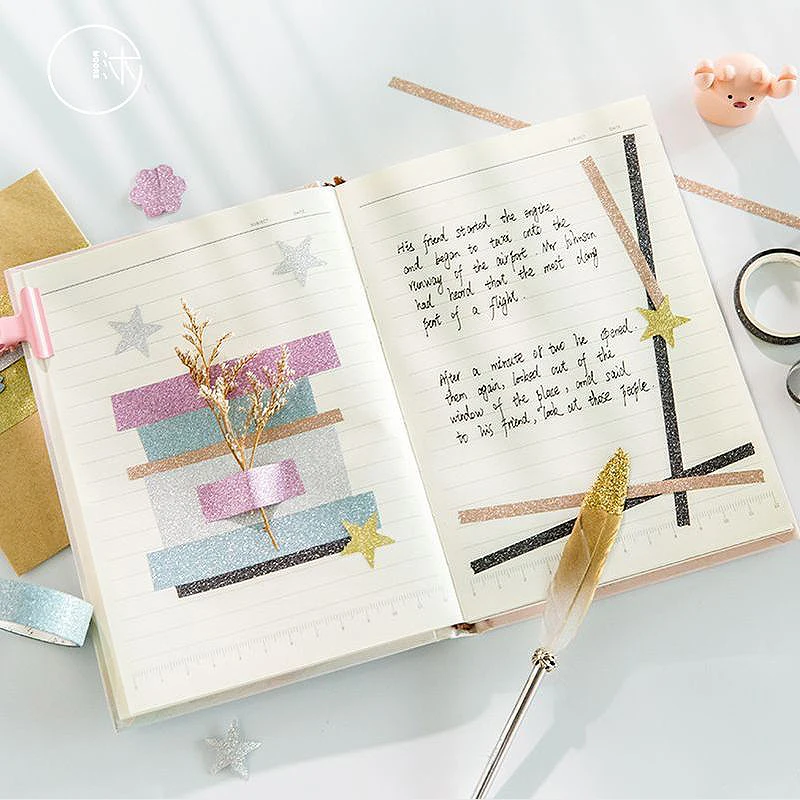 沐
MOODS
SUBJECT DATE
SUBJECT DATE
His friend started the engine
and began to taxi onto the
runway of the airport. Mr Johnson
had heard that the most dang
part of a flight.
After a minute or two he opened.
them again, looked out of the
window of the place, and said
to his friend, "look at those people